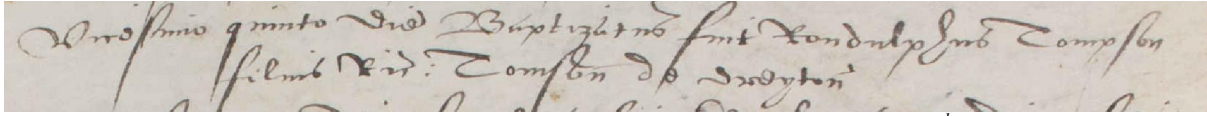 Vicessimo quinto die Baptizatus fuit Rondulphus Tompson
filius Ric: Tomson de Dreyton